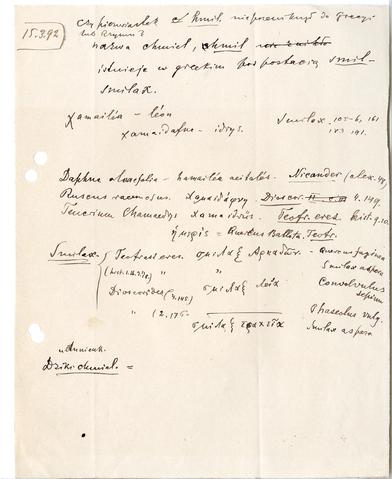 15.3.92
czy pierwiastek chmiel nie przeniknął do Grecji
lub Rzymu?
nazwa chmiel, chmil
istnieje w greckim pod postacią smil-
smilax.
χamailéa – léon
χama.dafne – idrys.
Smilax. 105-6, 161
183 191.
Daphne oleaefolia – hamailéa Nicander (alex. 48)
Ruscus racemosus χαμαιδάφνη. Dioscor. 4.149.
Teucrium Chamaedrys Teofr. eres. hist. 9.10.
ἡμερίς = Quercus Ballota. Teofr.
Smilax. Teofrast eres. σμιλαξ Αρκαδων. – quercus fuginea
" " Smilax aspera
Dioscorides σμιλαξ λεία Convolvulus
sepium
" (2.175. Phaseolus vulg.
σμιλαξ τραχεῖα Smilax aspera
u Annienk.
Dziki chmiel. =